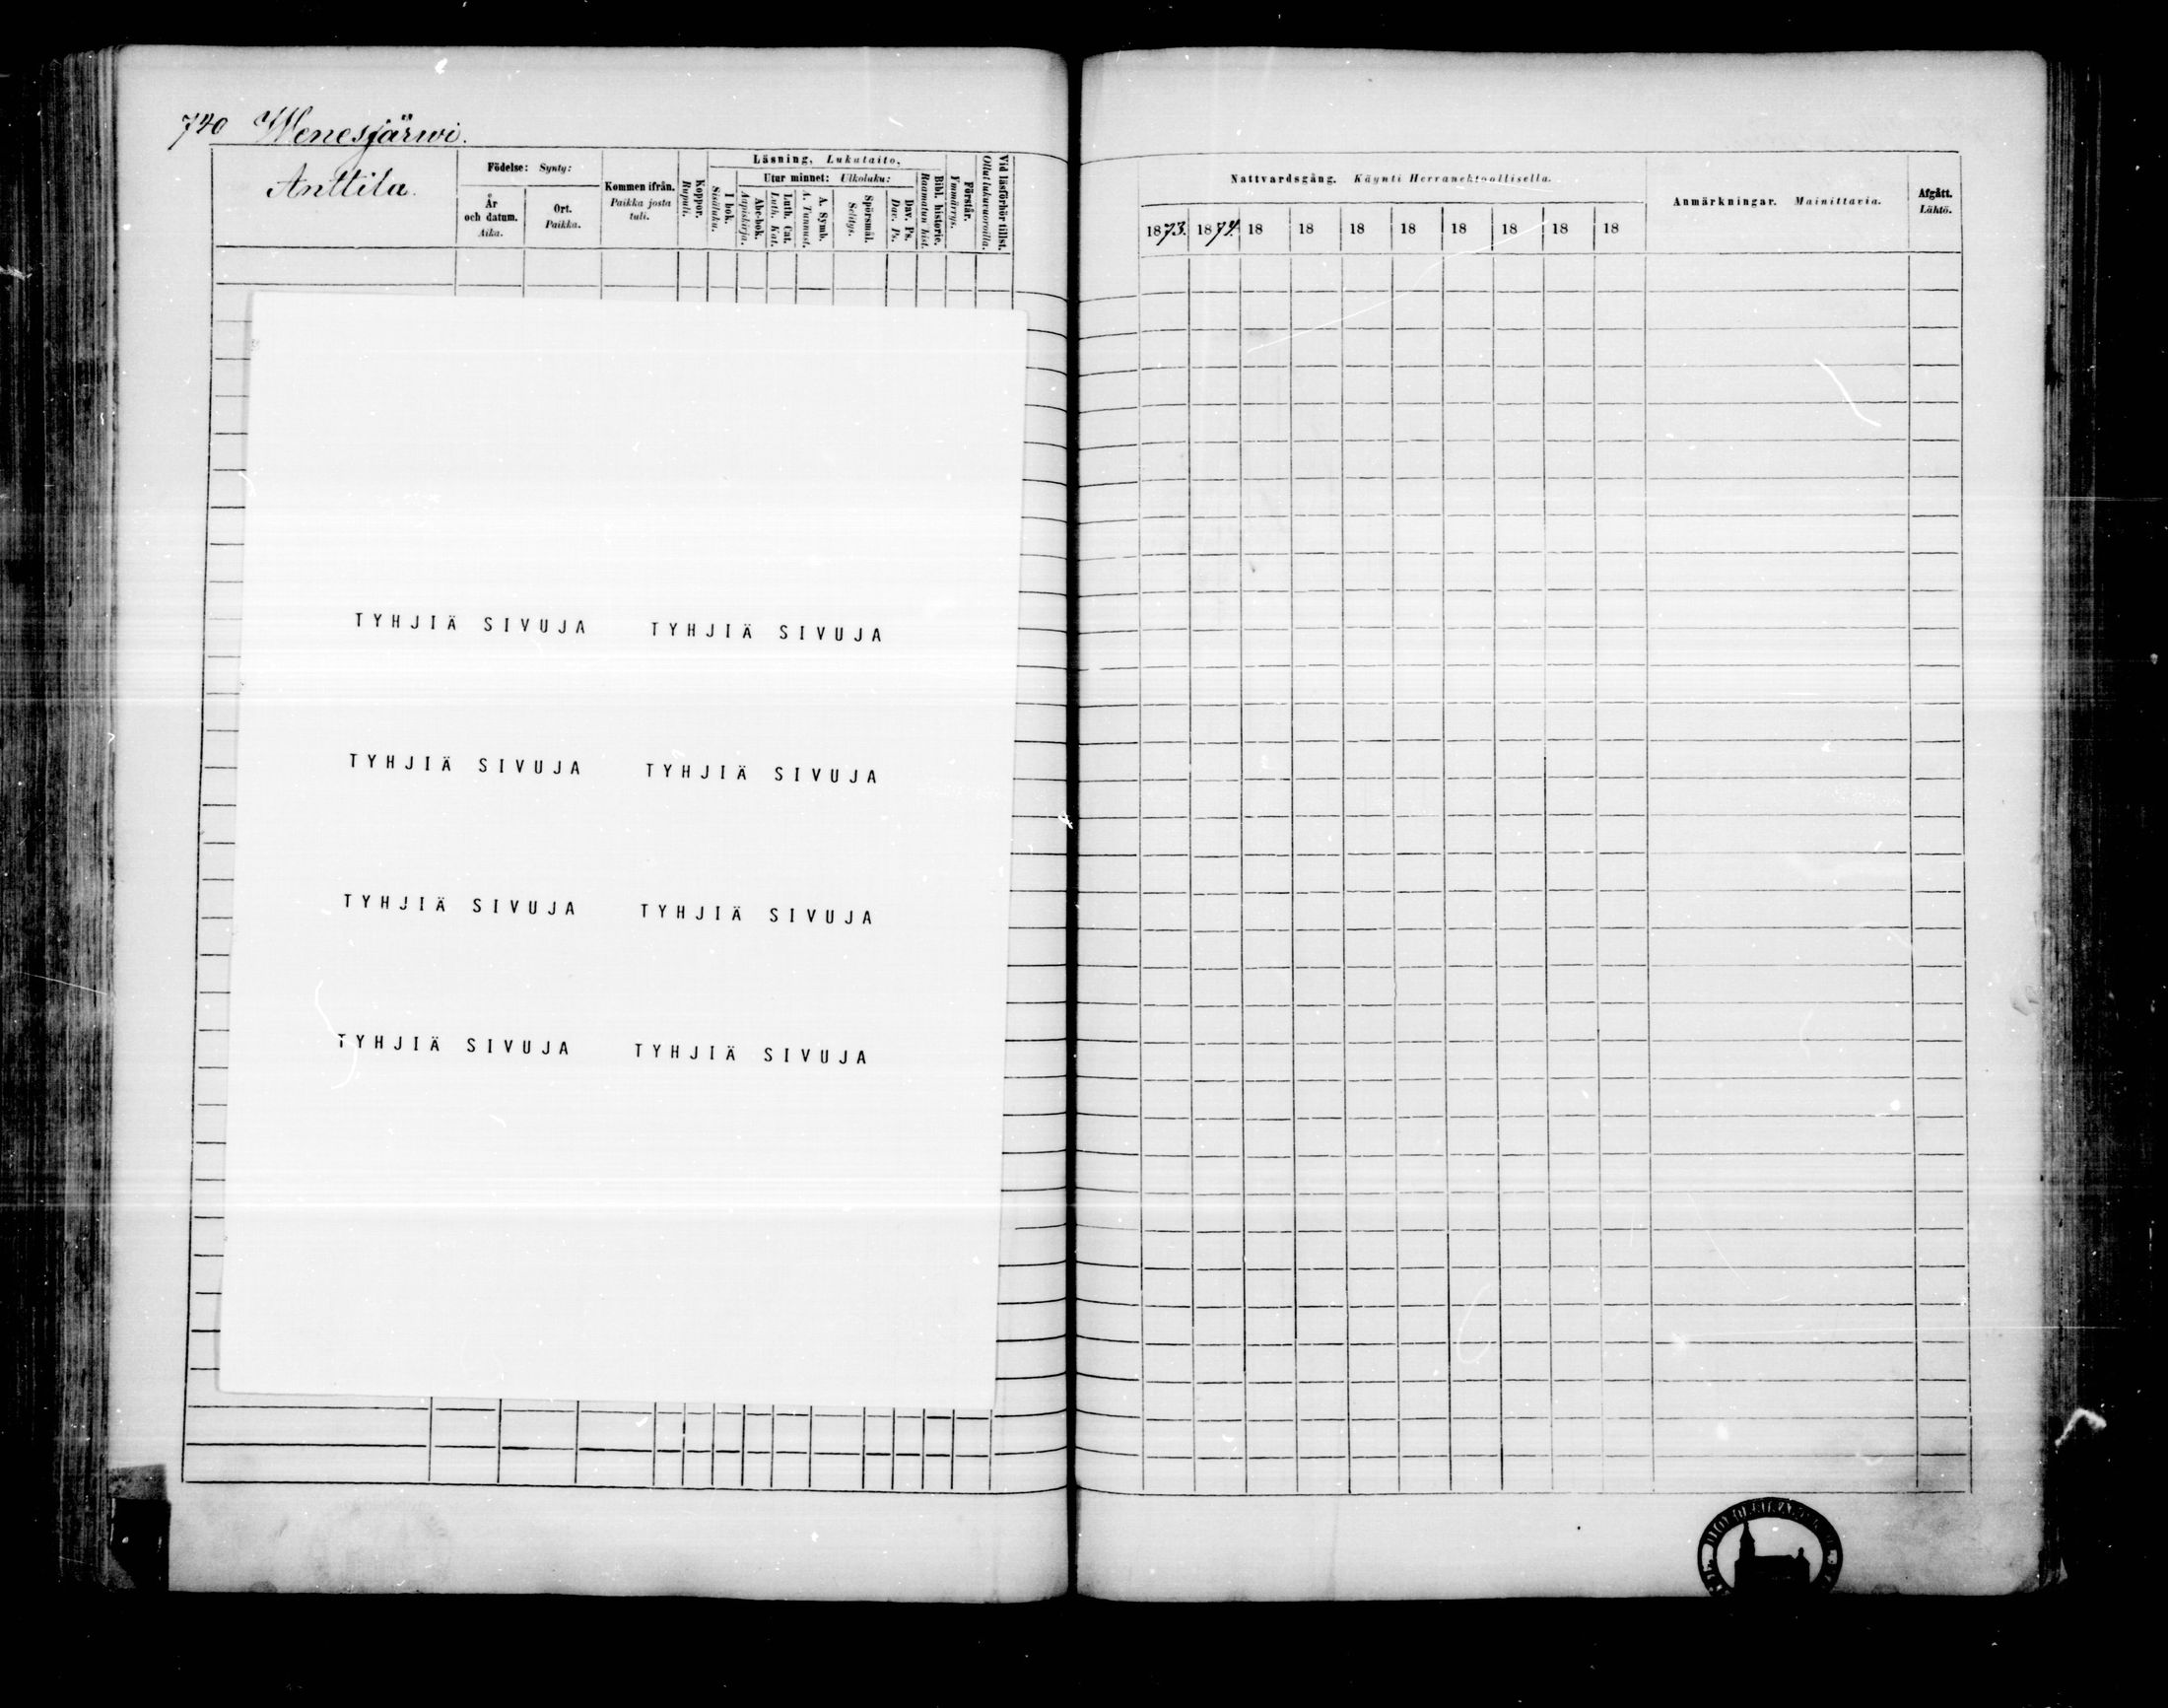 740 Wenesjärwi.
Anttila.
Födelse: Synty:
År och datum. Aika.
Ort. Paikka.
Kommen ifrån. Paikka josta tuli.
Koppor. Rupuli.
Läsning, Lukutaito,
I bok. Sisäluku.
Utur minnet: Ulkoluku:
Abc-bok. Aapiskirja.
Luth. Cat. Luth. Kat.
A. Symb. A. Tunnust.
Spörsmål. Selitys.
Dav. Ps. Dav. Ps.
Bibl. historie. Raamatun hist.
Förstår. Ymmärrys.
Vid läsförhör tillst. Ollut lukuvuoroilla.
Nattvardsgång. Käynti Herranehtoollisella.
1873. 1874. 18 18 18 18 18 18 18 18
Anmärkningar. Mainittavia.
Afgått. Lähtö.
TYHJIÄ SIVUJA TYHJIÄ SIVUJA
TYHJIÄ SIVUJA TYHJIÄ SIVUJA
TYHJIÄ SIVUJA TYHJIÄ SIVUJA
TYHJIÄ SIVUJA TYHJIÄ SIVUJA